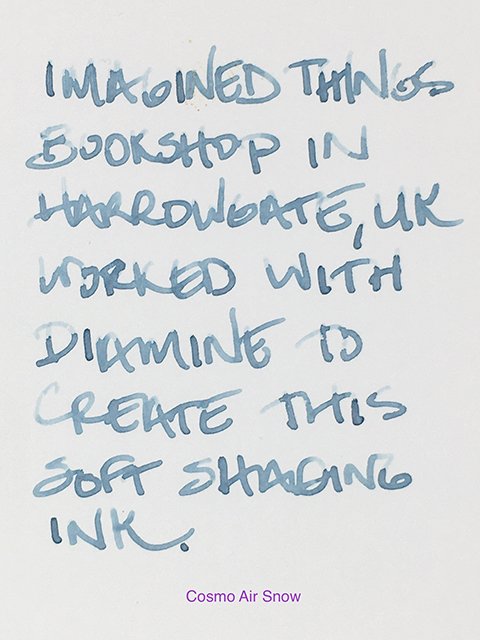 IMAGINED THINGS
BOOKSHOP IN
HARROWGATE, UK
WORKED WITH
DIAMINE TO
CREATE THIS
SOFT SHADING
INK.
Cosmo Air Snow